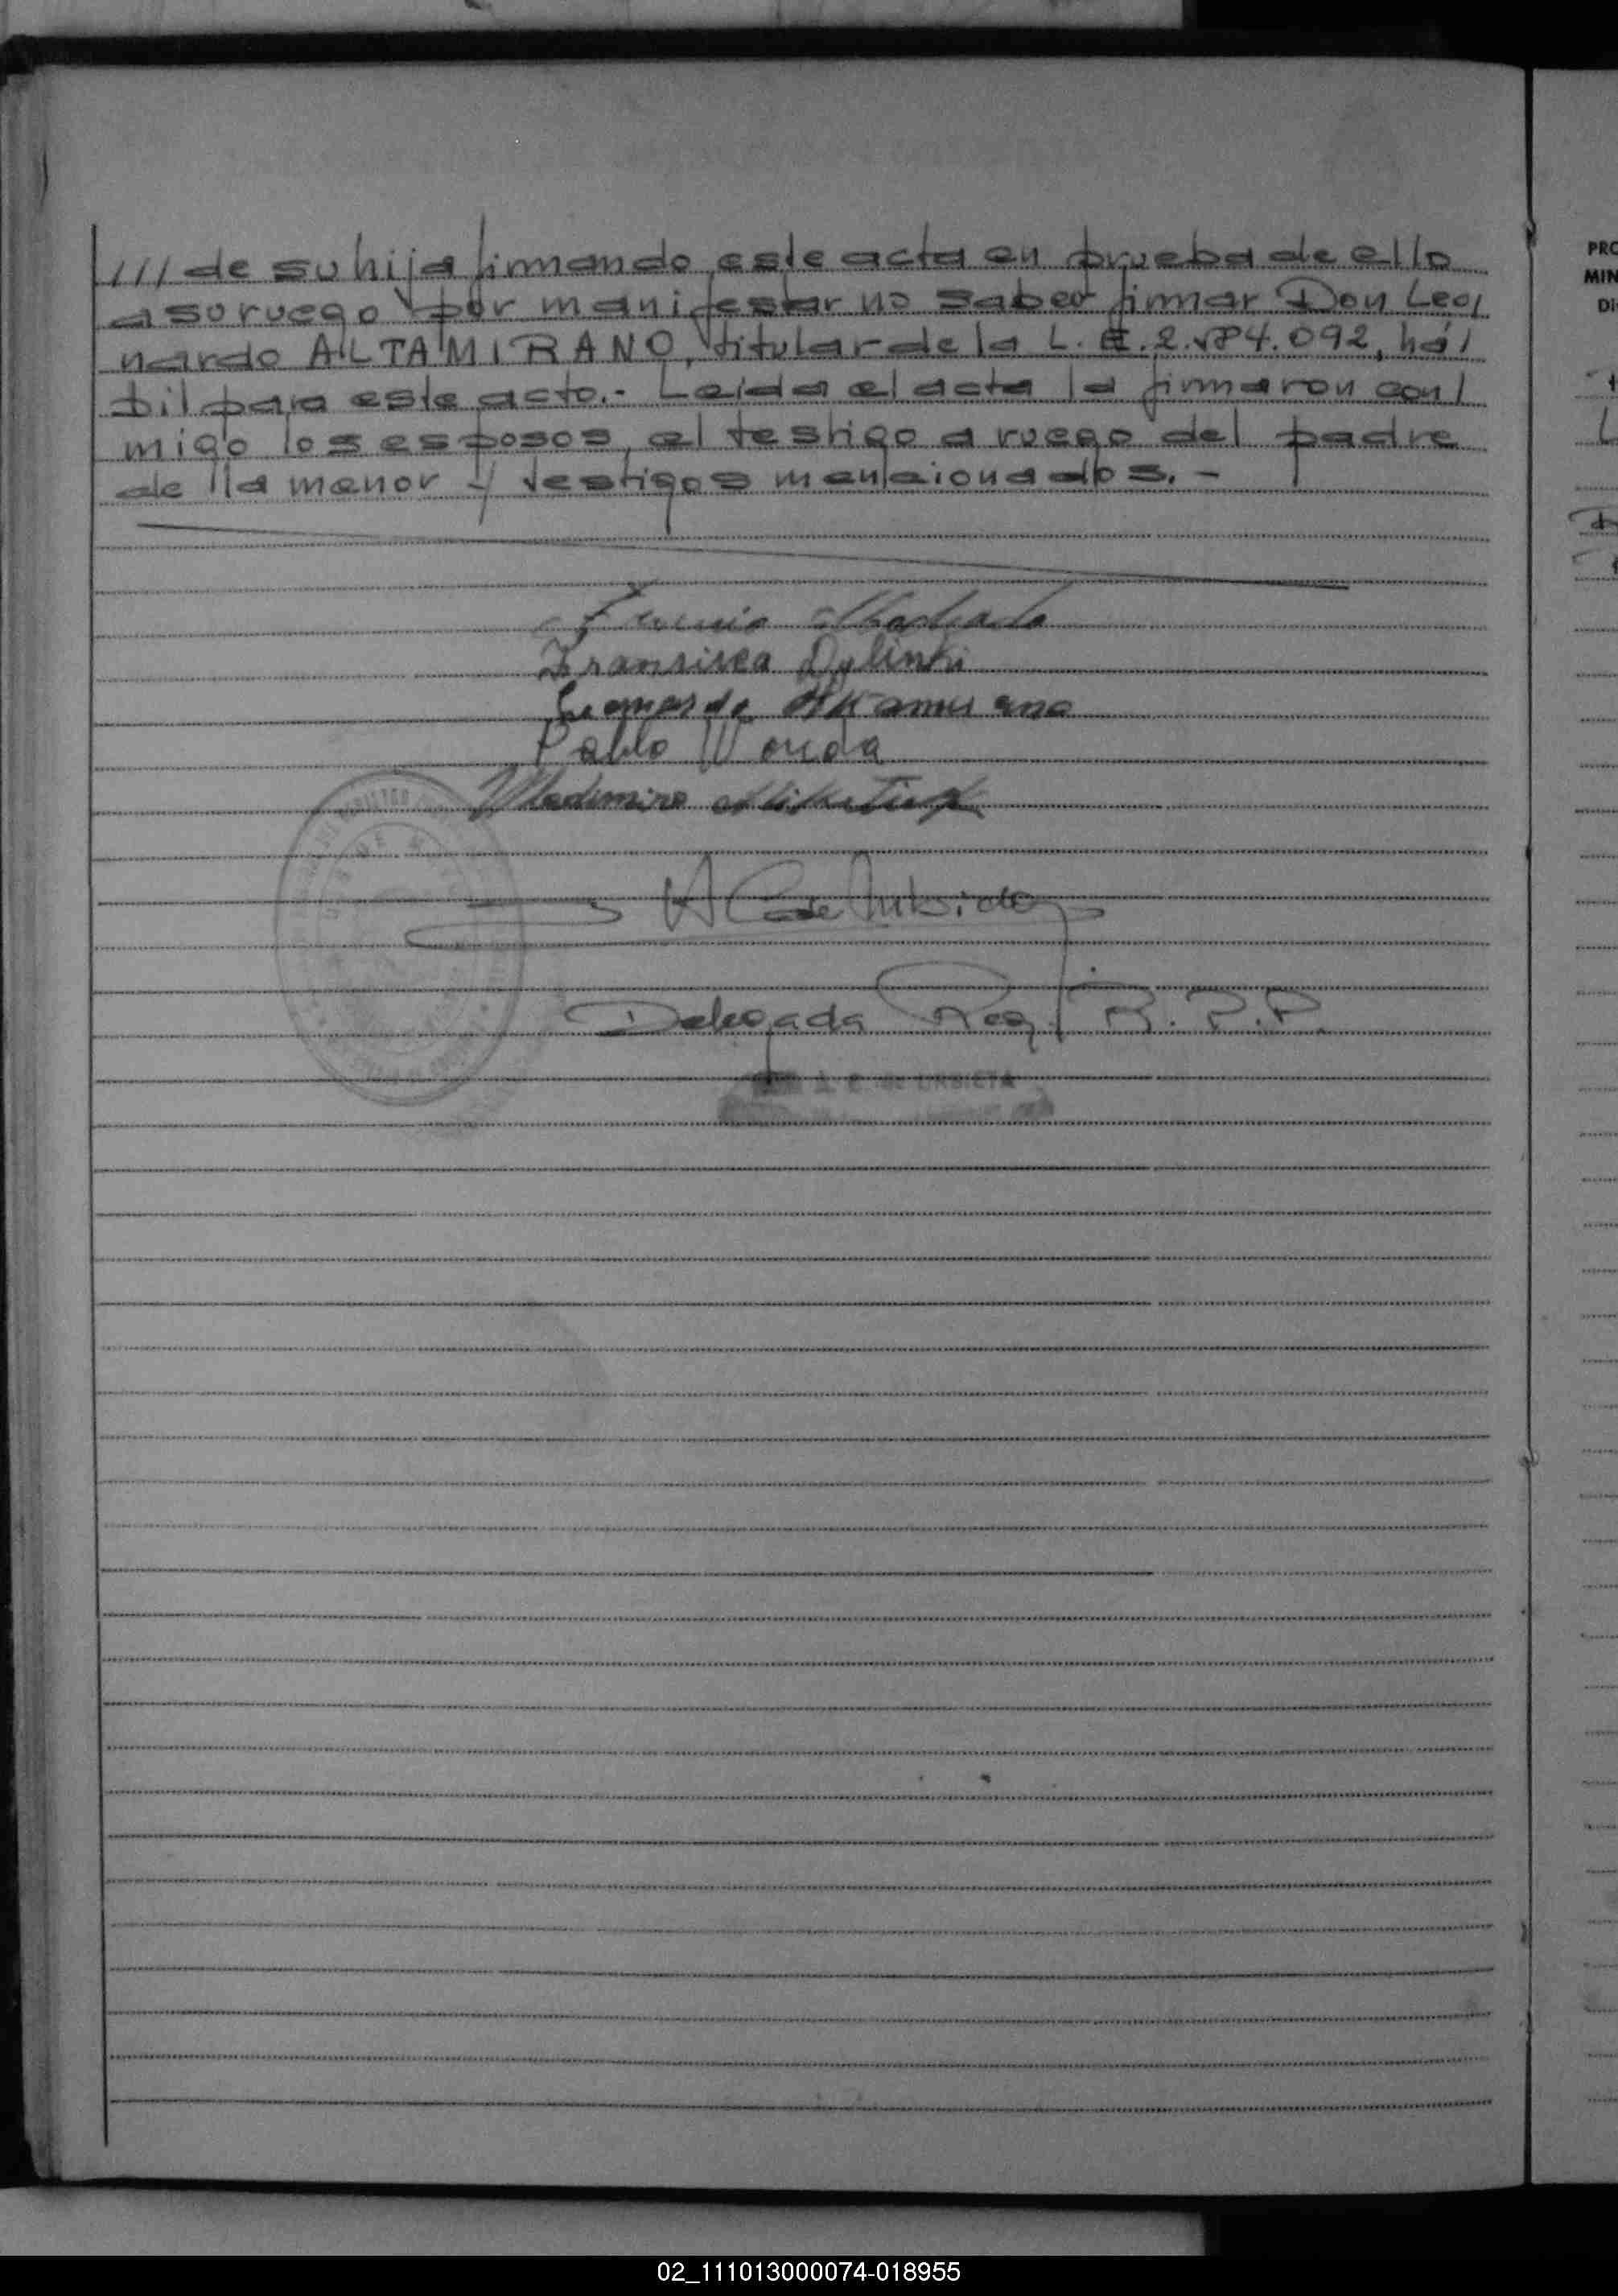 /// de su hija firmando este acta en prueba de ello
a su ruego por manifestar no saber firmar Don Leo/
nardo ALTAMIRANO, titular de la L. E. 2. 092, há/
bil para este acto.- Leída el acta la firmaron con/
migo los esposos, el testigo a ruego del padre
de lla menor y testigos mencionados. -
Machado
Fransisca Dylinki
Leonardo Altamirano
Pablo Worida
Wladimiro
Delegada Reg/ R. P. P.
de URBIETA
PRO
MIN
Di
02_111013000074-018955